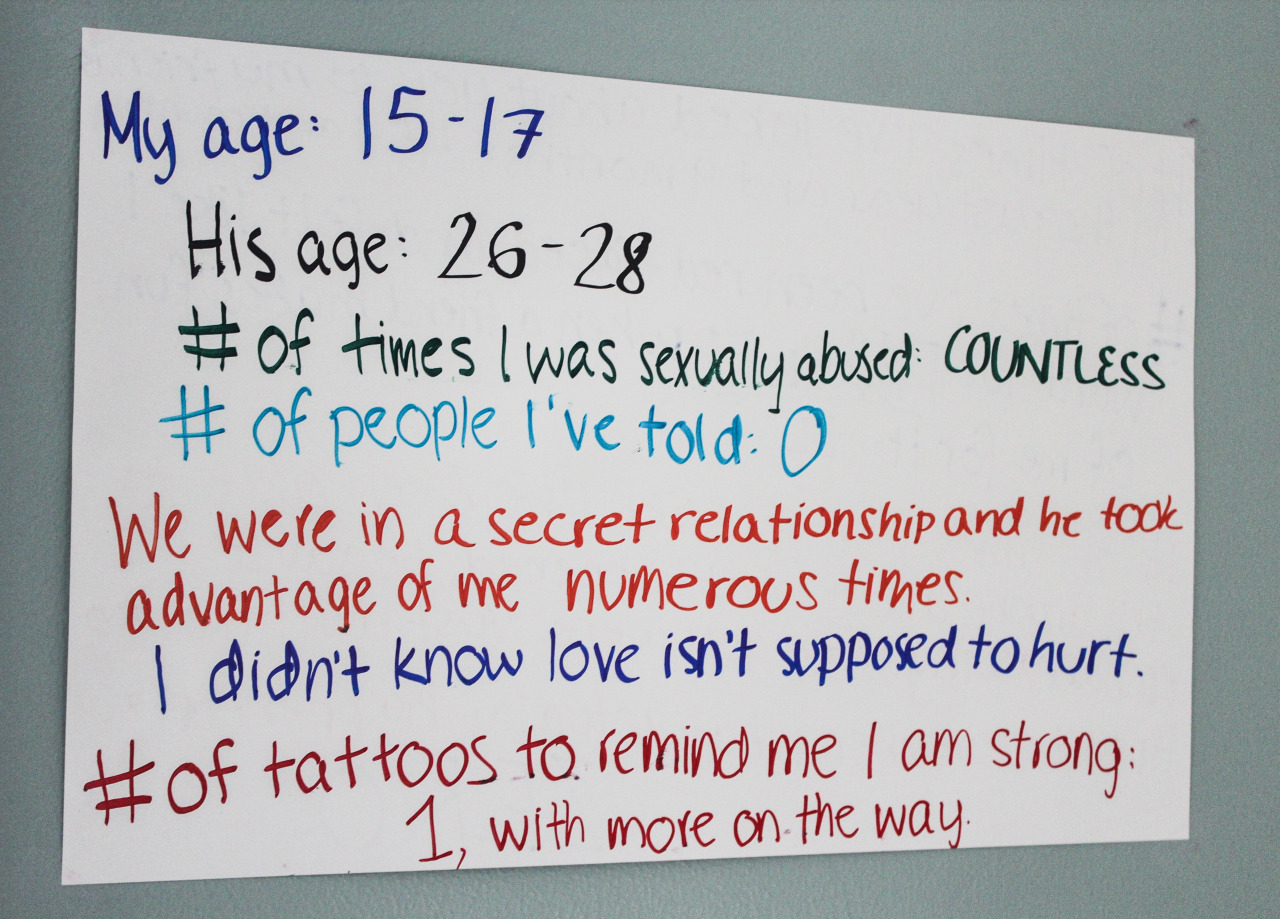 My age: 15-17
His age: 26-28
# of times I was sexually abused: COUNTLESS
# of people I've told: 0
We were in a secret relationship and he took
advantage of me numerous times.
I didn't know love isn't supposed to hurt.
# of tattoos to remind me I am strong:
1, with more on the way.